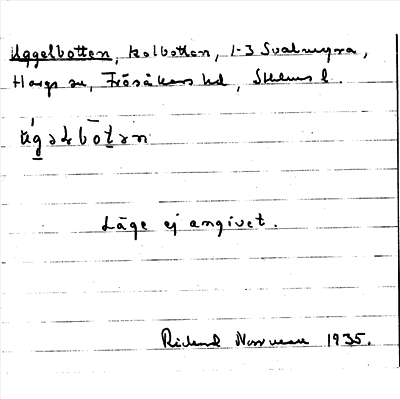 Uggelbotten, kolbotten, 1-3 Svalmyra,
Hargs sn, Frösåkers hd, Sthlms l.
ùgəlbo̅tən
Läge ej angivet.
Rickard Norrman 1935.